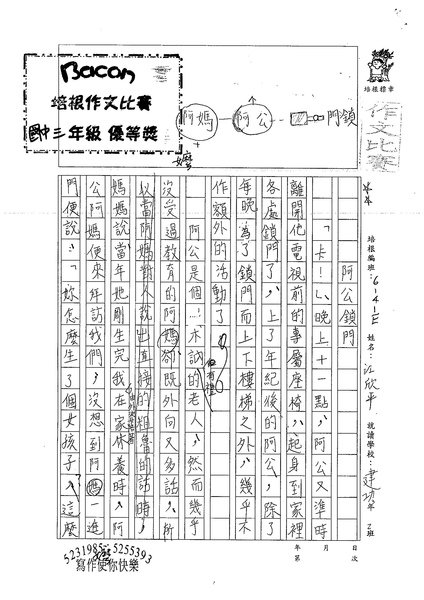 Bacon
培根作文比賽
國中三年級 優等獎
阿媽 — 阿公 — 門鎖
嬤
培根標章
作文比賽
培根編班：6-4-E 姓名：江欣平 就讀學校：建功 年 2班
阿公鎖門
「卡！」晚上十一點，阿公又準時
離開他電視前的專屬座椅，起身到家裡
各處鎖門了，上了年紀後的阿公，除了
每晚為了鎖門而上下樓梯之外，幾乎不
作額外的活動了。
阿公是個木訥的老人，然而幾乎
沒受過教育的阿媽卻既外向又多話，所
以當阿媽對人說出直接的粗魯的話時，
媽媽說當年她剛生完我在家休養時，阿
公阿媽便來拜訪我們，沒想到阿媽一進
門便說：「妳怎麼生了個女孩子，這麼
年 月 日
第 次
5231985 5255393
寫作使你快樂